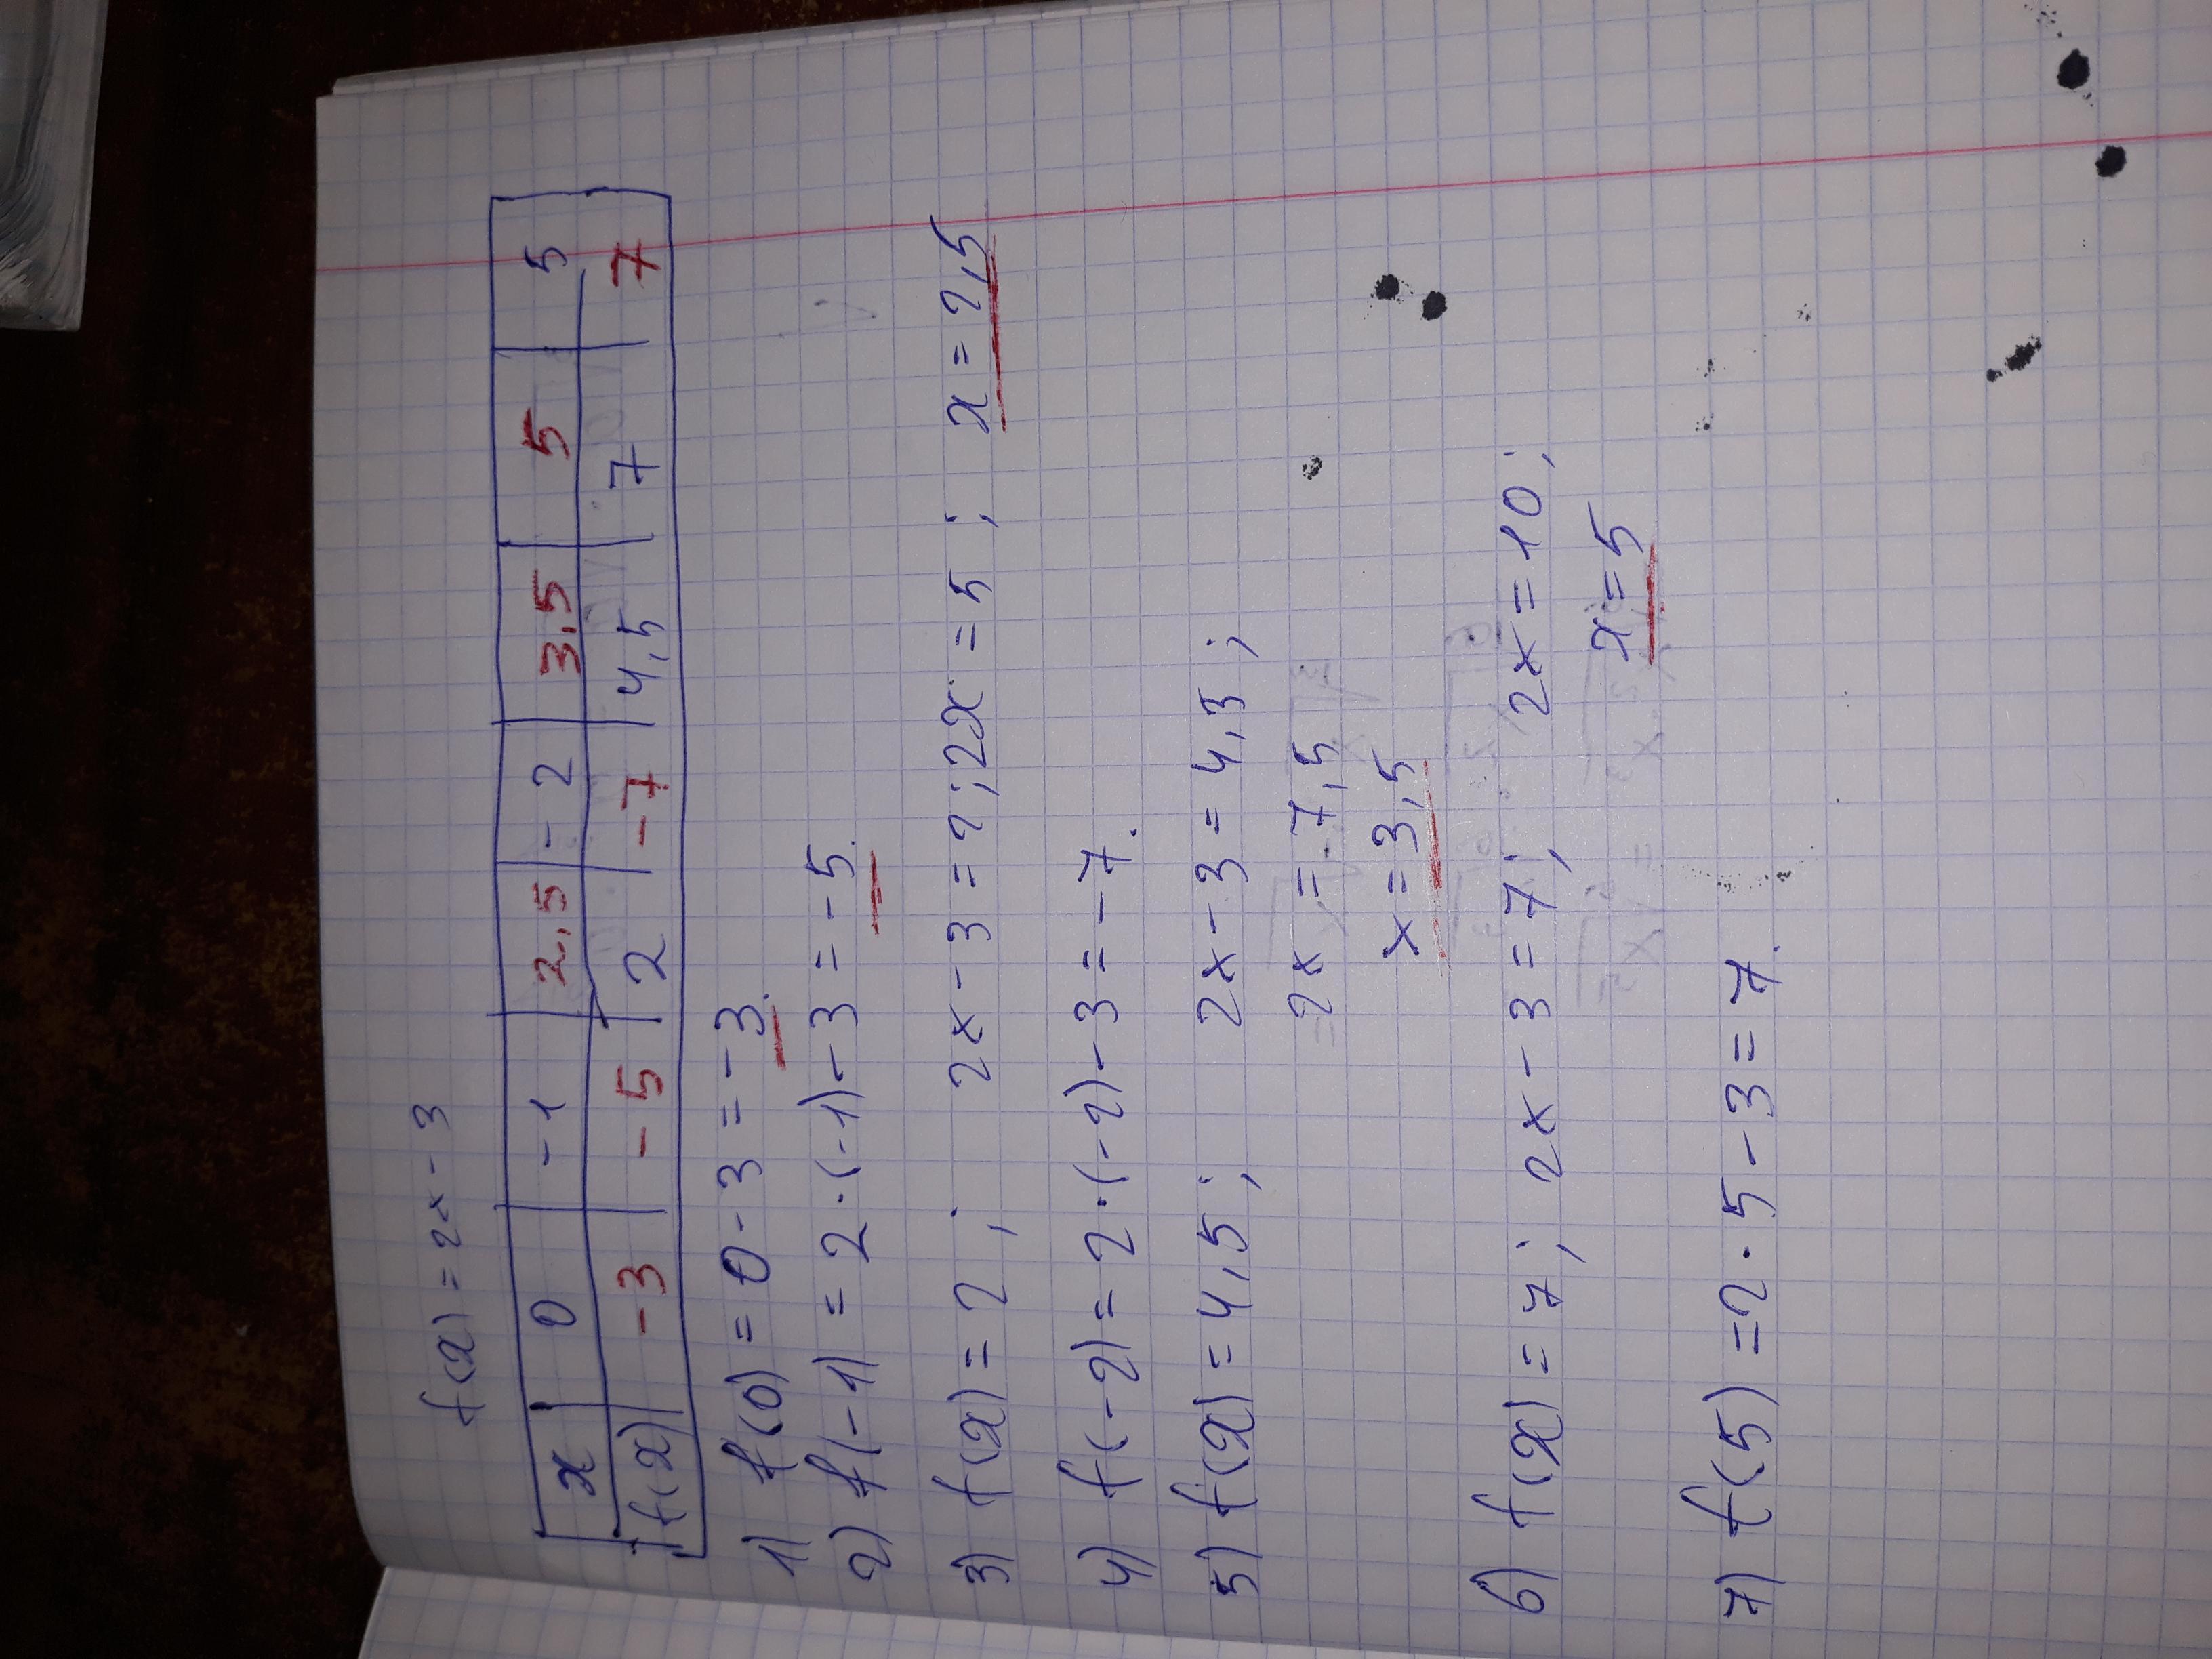 f(x) = 2x - 3
x 0 -1 2,5 -2 3,5 5 5
f(x) -3 -5 2 -7 4,5 7 7
1) f(0) = 0 - 3 = -3.
2) f(-1) = 2·(-1) - 3 = -5.
3) f(x) = 2; 2x - 3 = 2; 2x = 5; x = 2,5
4) f(-2) = 2·(-2) - 3 = -7.
5) f(x) = 4,5; 2x - 3 = 4,5;
2x = 7,5
x = 3,5
6) f(x) = 7; 2x - 3 = 7; 2x = 10;
x = 5
7) f(5) = 2·5 - 3 = 7.